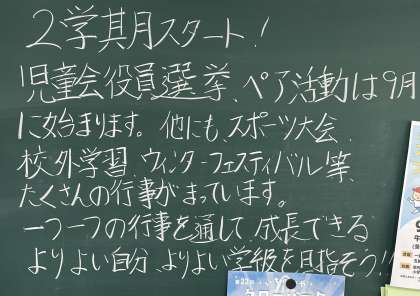 2学期スタート!
児童会役員選挙、ペア活動は9月
に始まります。他にも、スポーツ大会、
校外学習、ウィンターフェスティバル等、
たくさんの行事がまっています。
一つ一つの行事を通して、成長できる
よりよい自分、よりよい学級を目指そう!!
第22回